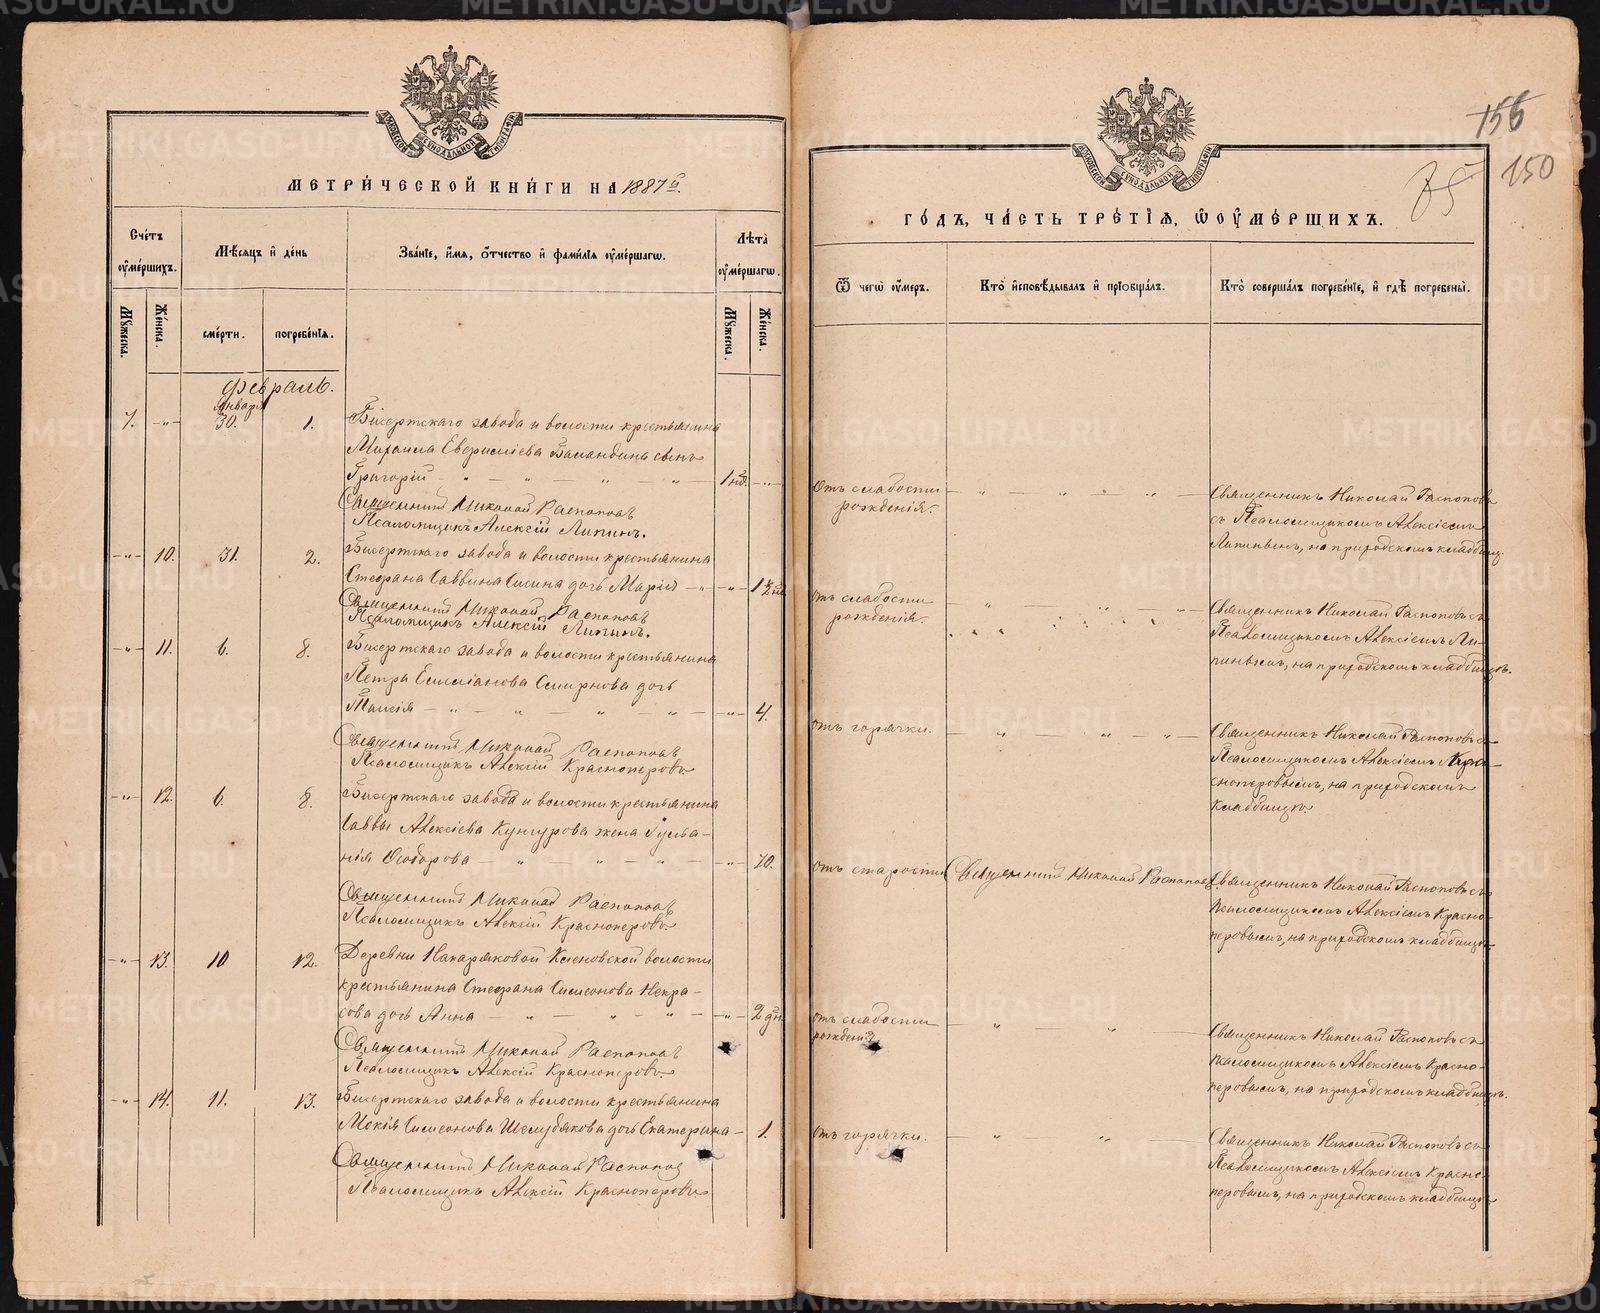 МЕТРИ́ЧЕСКОЙ КНИ́ГИ НА 1887 й.
Сче́тъ ѹ҆ме́ршихъ.
Мѣ́сяцъ и҆ де́нь
Зва́нїе, и҆́мя, ѻ҆́тчество и҆ фами́лїя ѹ҆ме́ршагѡ.
Лѣ́та ѹ҆ме́ршагѡ.
Мꙋ́жеска.
Же́нска.
сме́рти.
погребе́нїя.
Мꙋ́жеска.
Же́нска.
Февраль.
Января
7. -"- 30. 1. Бисертскаго завода и волости крестьянина
Михаила Евфимиева Баландина сынъ
Григорій - " - " - " - " - 1 нд. - " -
Священникъ Николай Распоповъ
Псаломщикъ Алексій Липинъ.
-"- 10. 31. 2. Бисертскаго завода и волости крестьянина
Стефана Саввина Сисина дочь Марія - " - " -
Священникъ Николай Распоповъ
Псаломщикъ Алексій Липинъ.
-"- 11. 6. 8. Бисертскаго завода и волости крестьянина
Петра Емиліанова Смирнова дочь
Таисія - " - " - " - " - " - 4.
Священникъ Николай Распоповъ
Псаломщикъ Алексій Красноперовъ
-"- 12. 6. 8. Бисертскаго завода и волости крестьянина
Саввы Алексіева Кунгурова жена Іулiа-
нія Ѳеодорова - " - " - " - " - 70.
Священникъ Николай Распоповъ
Псаломщикъ Алексій Красноперовъ
-"- 13. 10 12. Деревни Накаряковой Кленовской волости
крестьянина Стефана Симеонова Некра-
сова дочь Анна - " - " - " - " - 2 дн.
Священникъ Николай Распоповъ
Псаломщикъ Алексій Красноперовъ.
-"- 14. 11. 13. Бисертскаго завода и волости крестьянина
Мокія Симеонова Шелудякова дочь Екатерина - 1.
Священникъ Николай Распопов
Псаломщикъ Алексій Красноперовъ
156
150
85
ГО́ДЪ, ЧА́СТЬ ТРЕ́ТЇѦ, Ѡ ѸМЕ́РШИХЪ.
Ѿ чегѡ̀ ѹ҆́меръ.
Кто̀ и҆сповѣ́дывалъ и҆ прїобща́лъ.
Кто̀ соверша́лъ погребе́нїе, и҆ гдѣ̀ погребены̀.
Отъ слабости
рожденія.
Священникъ Николай Распоповъ
съ Псаломщикомъ Алексіемъ
Липинымъ, на приходскомъ кладбищѣ.
отъ слабости
рожденія.
Священникъ Николай Распоповъ съ
Псаломщикомъ Алексіемъ Ли-
пинымъ, на приходскомъ кладбищѣ.
отъ горячки.
Священникъ Николай Распоповъ съ
Псаломщикомъ Алексіемъ Кра-
сноперовымъ, на приходскомъ
кладбищѣ.
отъ старости
Священникъ Николай Распоповъ
Священникъ Николай Распоповъ съ
псаломщикомъ Алексіемъ Красно-
перовымъ, на приходскомъ кладбищѣ.
отъ слабости
рожденія
Священникъ Николай Распоповъ съ
псаломщикомъ Алексіемъ Красно-
перовымъ, на приходскомъ кладбищѣ.
отъ горячки.
Священникъ Николай Распоповъ съ
Псаломщикомъ Алексіемъ Красно-
перовымъ, на приходскомъ кладбищѣ
METRIKI.GASO-URAL.RU